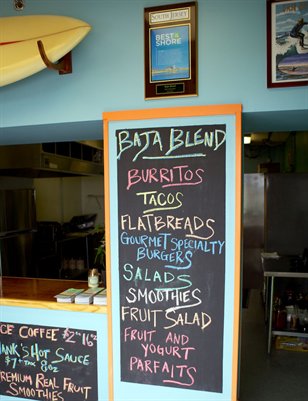 SOUTH JERSEY
BEST OF
THE SHORE
BAJA BLEND
BURRITOS
TACOS
FLATBREADS
GOURMET SPECIALTY
BURGERS
SALADS
SMOOTHIES
FRUIT SALAD
FRUIT AND
YOGURT
PARFAITS
ICE COFFEE
HANK'S HOT SAUCE
$7 + TAX 8oz
PREMIUM REAL FRUIT
SMOOTHIES